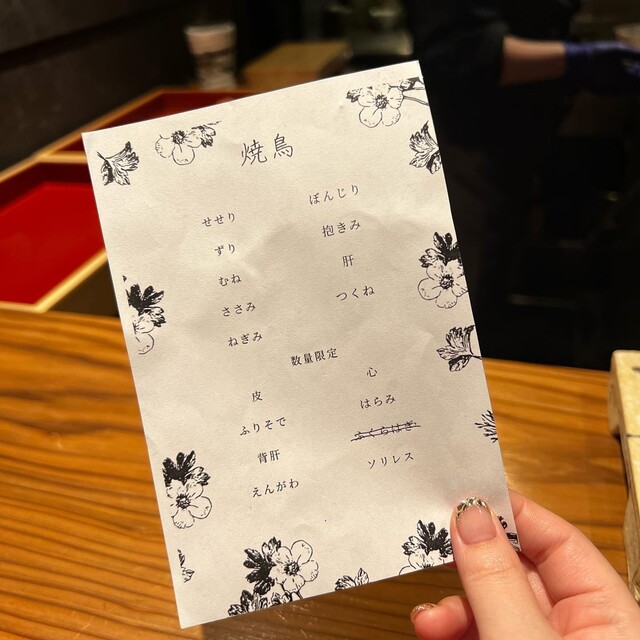 焼鳥
せせり
ずり
むね
ささみ
ねぎみ
ぼんじり
抱きみ
肝
つくね
数量限定
皮
ふりそで
背肝
えんがわ
心
はらみ
ふくらはぎ
ソリレス